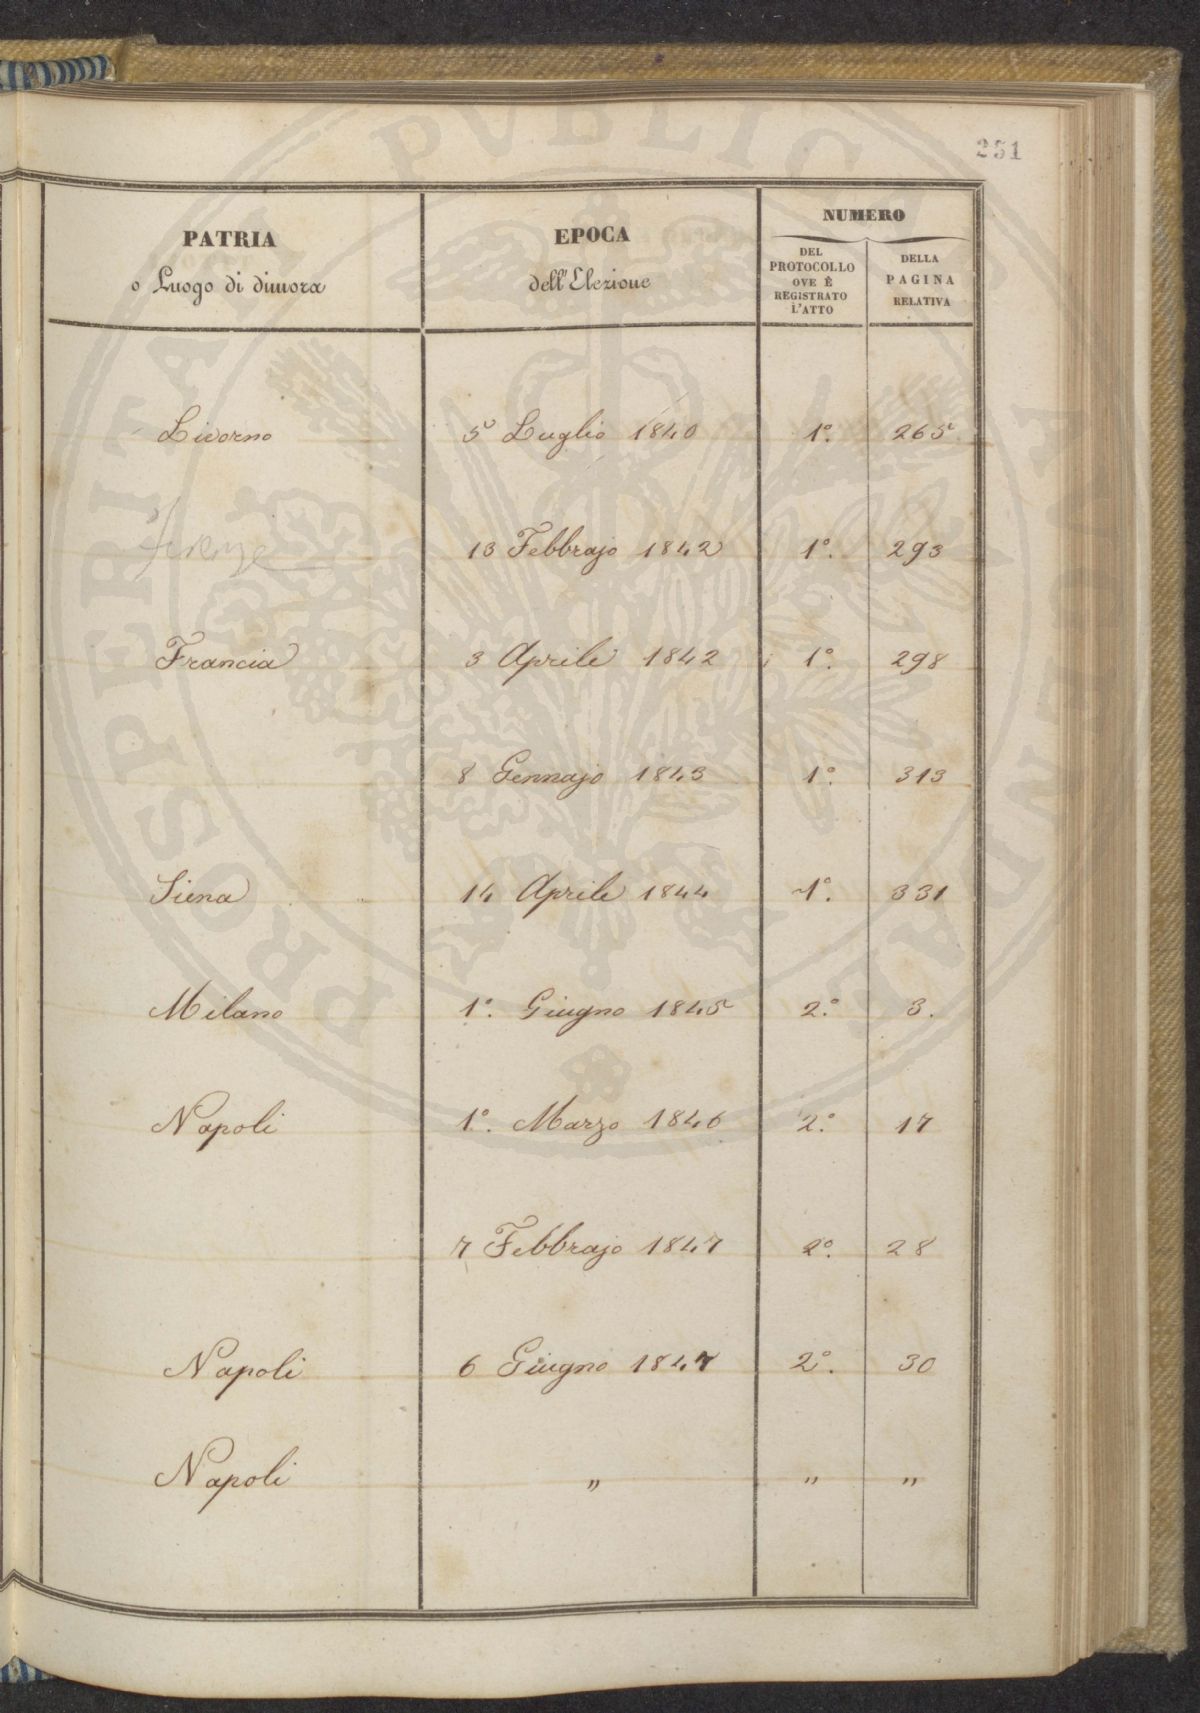 251
PATRIA
o Luogo di dimora
EPOCA
dell'Elezione
NUMERO
DEL
PROTOCOLLO
OVE È
REGISTRATO
L'ATTO
DELLA
PAGINA
RELATIVA
Livorno 5 Luglio 1840 1º. 265
Firenze 13 Febbrajo 1842 1º. 293
Francia 3 Aprile 1842 1º. 298
8 Gennajo 1843 1º. 313
Siena 14 Aprile 1844 1º. 331
Milano 1º. Giugno 1845 2º. 3.
Napoli 1º. Marzo 1846 2º. 17
7 Febbrajo 1847 2º. 28
Napoli 6 Giugno 1847 2º. 30
Napoli " " "
PROSPERITATI PVBLICAE AVGENDAE